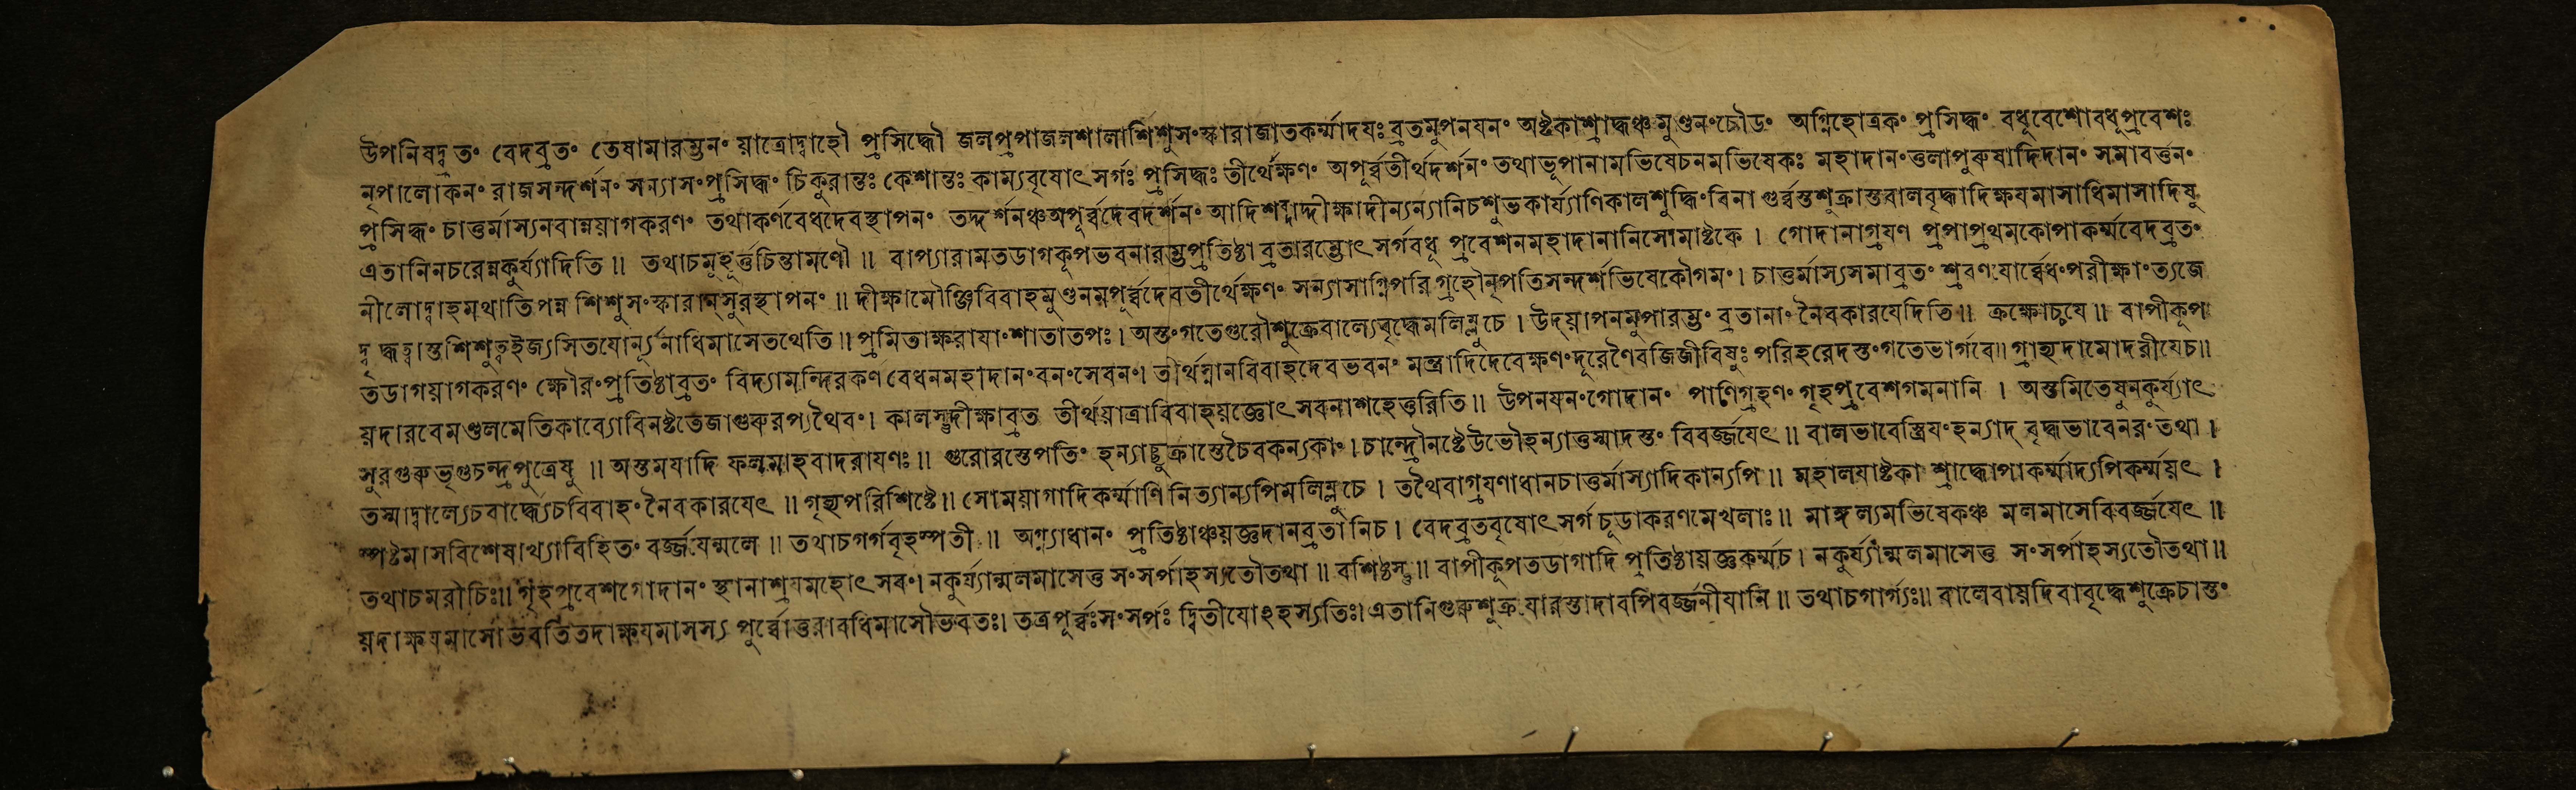 উপনিষদ্ব্রতং বেদব্রতং তেষামারম্ভনং য়াত্রোদ্বাহৌ প্রসিদ্ধৌ জলপ্রপাজলশালাশিশুসংস্কারাজাতকর্ম্মাদযঃ ব্রতমুপনযনং অষ্টকাশ্রাদ্ধঞ্চমুণ্ডনংচৌডং অগ্নিহোত্রকং প্রসিদ্ধং বধূবেশোবধূপ্রবেশঃ
নৃপালোকনং রাজসন্দর্শনং সন্যাসংপ্রসিদ্ধং চিকুরান্তঃ কেশান্তঃ কাম্যবৃষোৎসর্গঃ প্রসিদ্ধঃ তীর্থেক্ষণং অপূর্ব্বতীর্থদর্শনং তথাভূপানামভিষেচনমভিষেকঃ মহাদানংত্তলাপুরুষাদিদানং সমাবর্ত্তনং
প্রসিদ্ধং চাত্তুর্মাস্যনবান্নয়াগকরণং তথাকর্ণবেধদেবস্থাপনং তদ্দর্শনঞ্চঅপূর্ব্বদেবদর্শনং আদিশব্দাদ্দীক্ষাদীন্যন্যানিচশুভকার্য্যাণিকালশুদ্ধিংবিনা গুর্ব্বস্তশুক্রাস্তবালবৃদ্ধাদিক্ষযমাসাধিমাসাদিষু
এতানিনচরেন্নকুর্য্যাদিতি॥ তথাচমুহূর্ত্তচিন্তামণৌ॥ বাপ্যারামতডাগকূপভবনারম্ভপ্রতিষ্ঠা ব্রতারম্ভোৎসর্গবধূ প্রবেশনমহাদানানিসোমাষ্টকে। গোদানাগ্রযণ প্রপাপ্রথমকোপাকর্ম্মবেদব্রতং
নীলোদ্বাহমথাতিপন্ন শিশুসংস্কারান্সুরস্থাপনং॥ দীক্ষামৌঞ্জিবিবাহমুণ্ডনমপূর্ব্বদেবতীর্থেক্ষণং সন্যাসাগ্নিপরিগ্রহৌনৃপতিসন্দর্শাভিষেকৌগমং। চাত্তুর্মাস্যসমাব্রতং শ্রবণযোর্ব্বেধংপরীক্ষাংত্যজে
দ্বৃদ্ধত্বাস্তশিশুত্বইজ্যসিতযোর্ন্যূনাধিমাসেতথেতি॥ প্রমিতাক্ষরাযাংশাতাতপঃ। অস্তংগতেগুরৌশুক্রেবাল্যেবৃদ্ধেমলিম্লুচে। উদ্য়াপনমুপারম্ভং ব্রতানাং নৈবকারযেদিতি॥ ক্রক্ষোচ্চযে॥ বাপীকূপ
তডাগয়াগকরণং ক্ষৌরংপ্রতিষ্ঠাব্রতং বিদ্যামন্দিরকর্ণবেধনমহাদানংবনংসেবনং। তীর্থস্নানবিবাহদেবভবনং মন্ত্রাদিদেবেক্ষণংদূরেণৈবজিজীবিষুঃ পরিহরেদস্তংগতেভার্গবে॥ গ্রাহ্যদামোদরীযেচ॥
য়দারবেমণ্ডলমেতিকাব্যোবিনষ্টতেজাগুরুরপ্যথৈবং। কালস্তুদীক্ষাব্রত তীর্থয়াত্রাবিবাহয়জ্ঞোৎসবনাশহেত্তুরিতি॥ উপনযনংগোদানং পাণিগ্রহণং গৃহপ্রবেশগমনানি। অস্তমিতেষুনকুর্য্যাৎ
সুরগুরুভৃগুচন্দ্রপুত্রেষু॥ অস্তমযাদি ফলমাহবাদরাযণঃ॥ গুরোরস্তেপতিং হন্যাচ্ছুক্রাস্তেচৈবকন্যকাং। চান্দ্রৌনষ্টেউভৌহন্যাত্তস্মাদস্তং বিবর্জ্জযেৎ॥ বালভাবেস্ত্রিযংহন্যাদ্ বৃদ্ধভাবেনরংতথা।
তস্মাদ্বাল্যেচবার্দ্ধ্যেচবিবাহং নৈবকারযেৎ॥ গৃহ্যপরিশিষ্টে॥ সোময়াগাদিকর্ম্মাণি নিত্যান্যপিমলিম্লুচে। তথৈবাগ্রযণাধানচাত্তুর্মাস্যাদিকান্যপি॥ মহালযাষ্টকা শ্রাদ্ধোপাকর্ম্মাদ্যপিকর্ম্ময়ৎ।
স্পষ্টমাসবিশেষাখ্যাবিহিতং বর্জ্জযেন্মলে॥ তথাচগর্গবৃহস্পতী॥ অগ্ন্যাধানং প্রতিষ্ঠাঞ্চয়জ্ঞদানব্রতানিচ। বেদব্রতবৃষোৎসর্গ চূডাকরণমেখলাঃ॥ মাঙ্গল্যমভিষেকঞ্চ মলমাসেবিবর্জ্জযেৎ॥
তথাচমরীচিঃ॥ গৃহপ্রবেশগোদানং স্থানাশ্রযমহোৎসবং। নকুর্য্যান্মলমাসেত্তু সংসর্পাহস্যতৌতথা॥ বশিষ্ঠস্তু॥ বাপীকূপতডাগাদি প্রতিষ্ঠায়জ্ঞকর্ম্মচ। নকুর্য্যান্মলমাসেত্তু সংসর্পাহস্যতৌতথা॥
য়দাক্ষযমাসোভবতিতদাক্ষযমাসস্য পূর্ব্বোত্তরাবধিমাসৌভবতঃ। তত্রপূর্ব্বঃসংসর্পঃ দ্বিতীযোঽহস্যতিঃ। এতানিগুরুশুক্রযোরস্তাদাবপিবর্জ্জনীযানি॥ তথাচগার্গ্যঃ॥ বালেবায়দিবাবৃদ্ধেশুক্রেচাস্তং